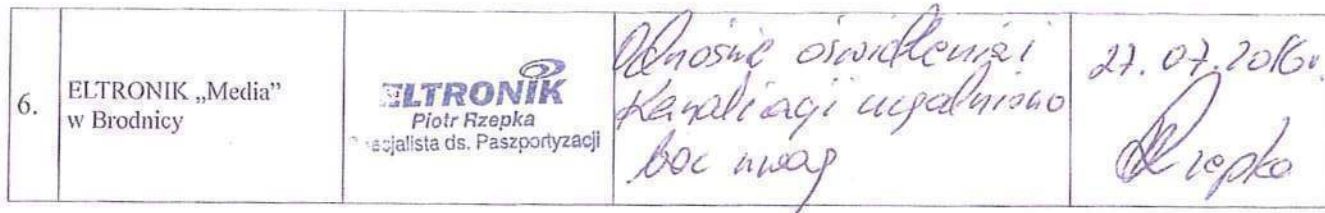 6.
ELTRONIK „Media”
w Brodnicy
ELTRONIK
Piotr Rzepka
Specjalista ds. Paszportyzacji
Odnośnie oświetlenia i
Kanalizacji uzgodniono
bez uwag
27.07.2016r.
Rzepka